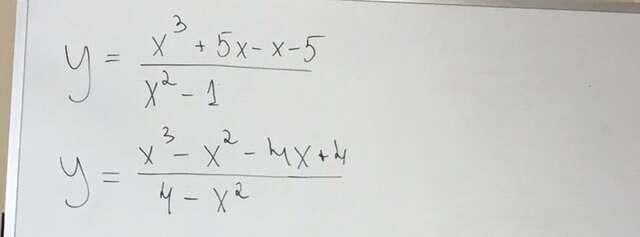 y = (x³ + 5x - x - 5) / (x² - 1)
y = (x³ - x² - 4x + 4) / (4 - x²)